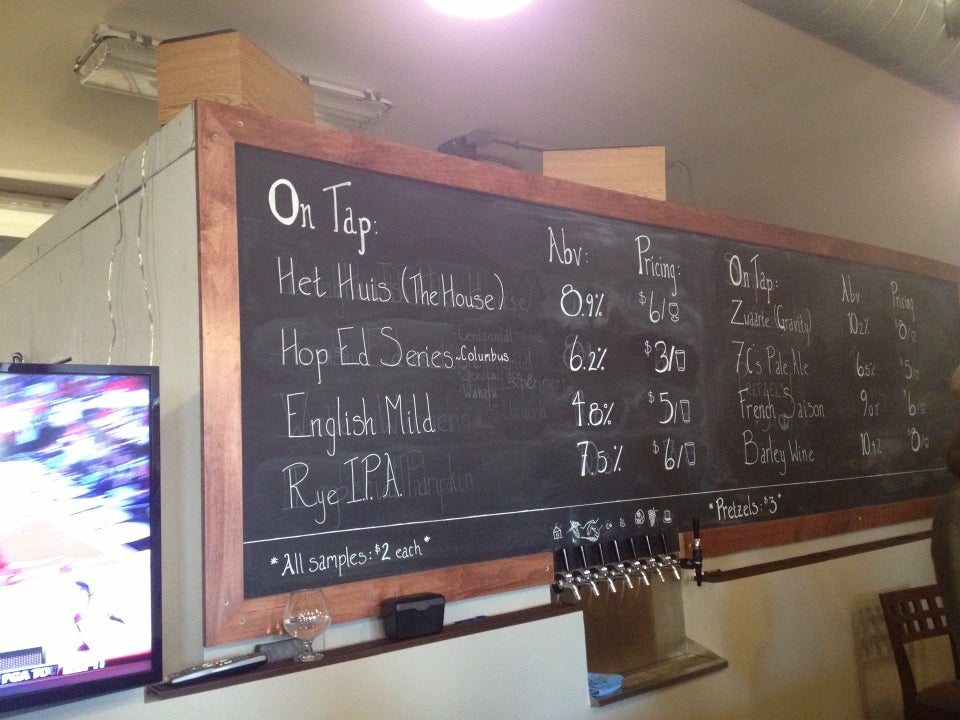 On Tap:
Abv:
Pricing:
Het Huis (The House) 8.9% $6/
Hop Ed Series - Columbus 6.2% $3/
English Mild 4.8% $5/
Rye I.P.A. 7.5% $6/
*All samples: $2 each*
On Tap:
Abv:
Pricing
Zwaarte (Gravity) 10.2% $8/
7C's Pale Ale 6.5% $5/
French Saison 9.0% $6/
Barley Wine $8/
*Pretzels: $3*
PGA TO